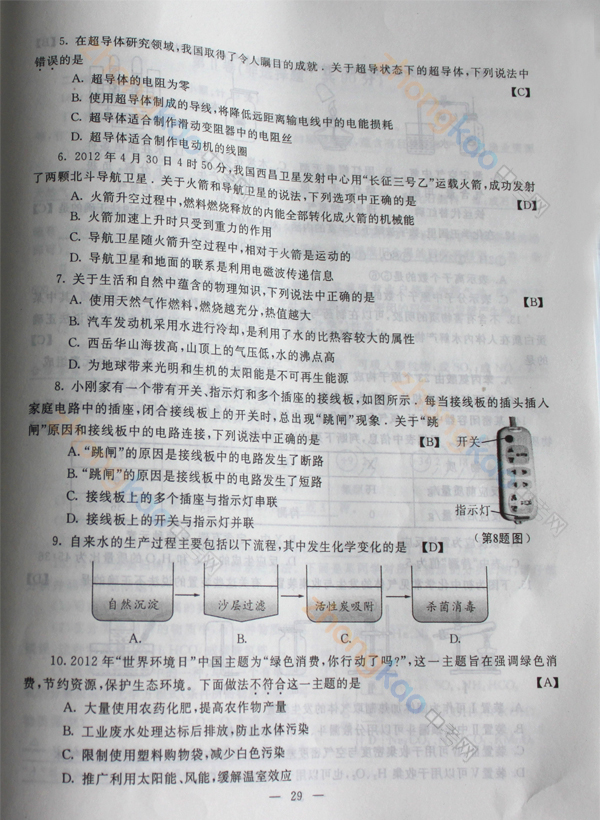 5. 在超导体研究领域,我国取得了令人瞩目的成就．关于超导状态下的超导体,下列说法中
错误的是 【C】
A. 超导体的电阻为零
B. 使用超导体制成的导线,将降低远距离输电线中的电能损耗
C. 超导体适合制作滑动变阻器中的电阻丝
D. 超导体适合制作电动机的线圈
6. 2012年4月30日4时50分,我国西昌卫星发射中心用“长征三号乙”运载火箭,成功发射
了两颗北斗导航卫星．关于火箭和导航卫星的说法,下列选项中正确的是 【D】
A. 火箭升空过程中,燃料燃烧释放的内能全部转化成火箭的机械能
B. 火箭加速上升时只受到重力的作用
C. 导航卫星随火箭升空过程中,相对于火箭是运动的
D. 导航卫星和地面的联系是利用电磁波传递信息
7. 关于生活和自然中蕴含的物理知识,下列说法中正确的是 【B】
A. 使用天然气作燃料,燃烧越充分,热值越大
B. 汽车发动机采用水进行冷却,是利用了水的比热容较大的属性
C. 西岳华山海拔高,山顶上的气压低,水的沸点高
D. 为地球带来光明和生机的太阳能是不可再生能源
8. 小刚家有一个带有开关、指示灯和多个插座的接线板,如图所示．每当接线板的插头插入
家庭电路中的插座,闭合接线板上的开关时,总出现“跳闸”现象．关于“跳
闸”原因和接线板中的电路连接,下列说法中正确的是 【B】
A.“跳闸”的原因是接线板中的电路发生了断路
B.“跳闸”的原因是接线板中的电路发生了短路
C. 接线板上的多个插座与指示灯串联
D. 接线板上的开关与指示灯并联
开关
指示灯
(第8题图)
9. 自来水的生产过程主要包括以下流程,其中发生化学变化的是 【D】
自然沉淀 沙层过滤 活性炭吸附 杀菌消毒
A. B. C. D.
10. 2012年“世界环境日”中国主题为“绿色消费,你行动了吗?”,这一主题旨在强调绿色消
费,节约资源,保护生态环境。下面做法不符合这一主题的是 【A】
A. 大量使用农药化肥,提高农作物产量
B. 工业废水处理达标后排放,防止水体污染
C. 限制使用塑料购物袋,减少白色污染
D. 推广利用太阳能、风能,缓解温室效应
— 29 —
zhongkao中考网
zhongkao中考网
zhongkao中考网